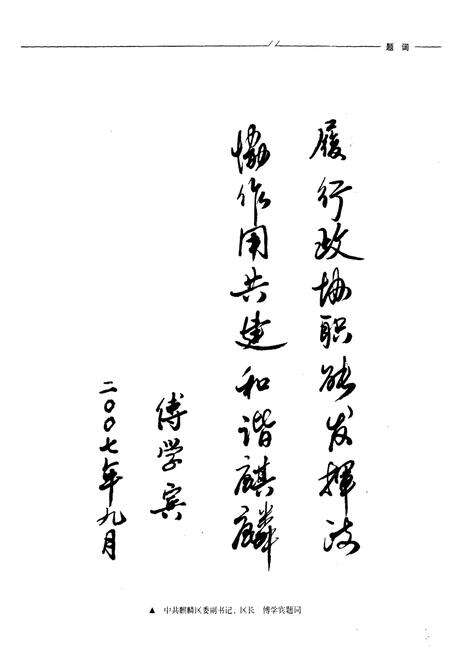 题 词
履行政协职能发揮政
协作用共建和谐麒麟
傅学宾
二〇〇七年九月
▲ 中共麒麟区委副书记、区长 傅学宾题词